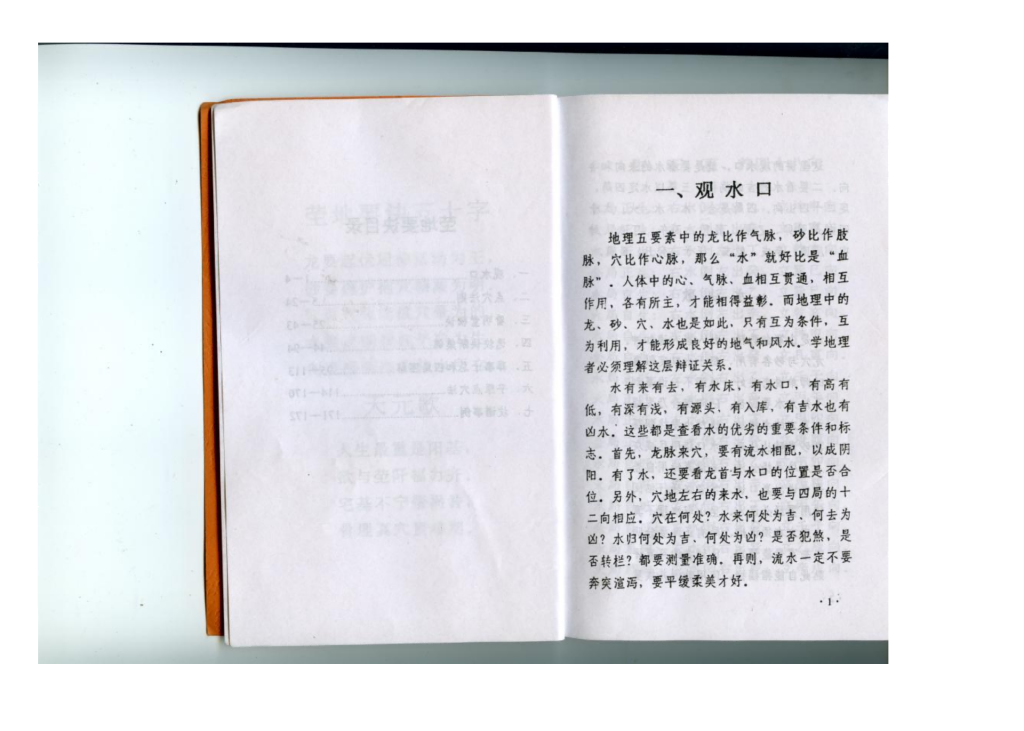 一、观水口
地理五要素中的龙比作气脉，砂比作肢
脉，穴比作心脉，那么“水”就好比是“血
脉”。人体中的心、气脉、血相互贯通，相互
作用，各有所主，才能相得益彰。而地理中的
龙、砂、穴、水也是如此，只有互为条件，互
为利用，才能形成良好的地气和风水。学地理
者必须理解这层辩证关系。
水有来有去，有水床，有水口，有高有
低，有深有浅，有源头、有入库，有吉水也有
凶水。这些都是查看水的优劣的重要条件和标
志。首先，龙脉来穴，要有流水相配，以成阴
阳。有了水，还要看龙首与水口的位置是否合
位。另外，穴地左右的来水，也要与四局的十
二向相应。穴在何处？水来何处为吉、何去为
凶？水归何处为吉、何处为凶？是否犯煞，是
否转栏？都要测量准确。再则，流水一定不要
奔突湍泻，要平缓柔美才好。
·1·